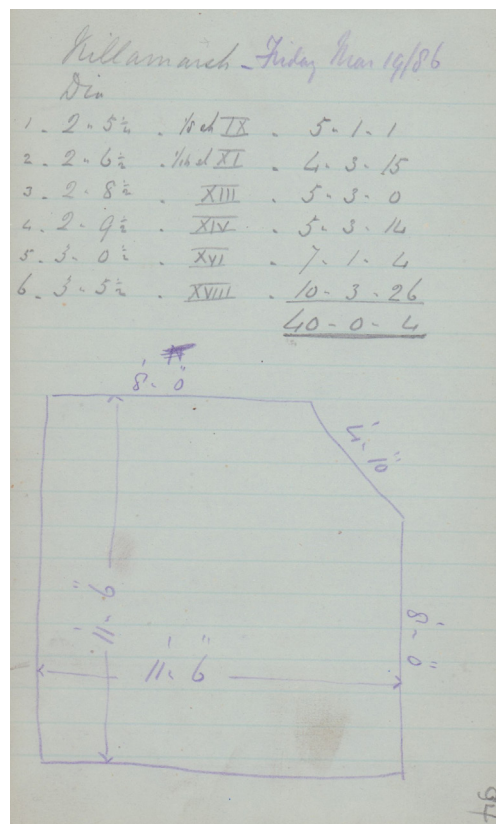 Killamarsh - Friday Mar 19/86
Dia
1 - 2 - 5 1/4 - 1/8 ch IX - 5 - 1 - 1
2 - 2 - 6 1/2 - XI - 4 - 3 - 15
3 - 2 - 8 1/2 - XIII - 5 - 3 - 0
4 - 2 - 9 1/2 - XIV - 5 - 3 - 14
5 - 3 - 0 1/2 - XVI - 7 - 1 - 4
6 - 3 - 5 1/2 - XVIII - 10 - 3 - 26
40 - 0 - 4
8' - 0"
4' - 10"
11' - 6"
8' - 0"
11' - 6"
94